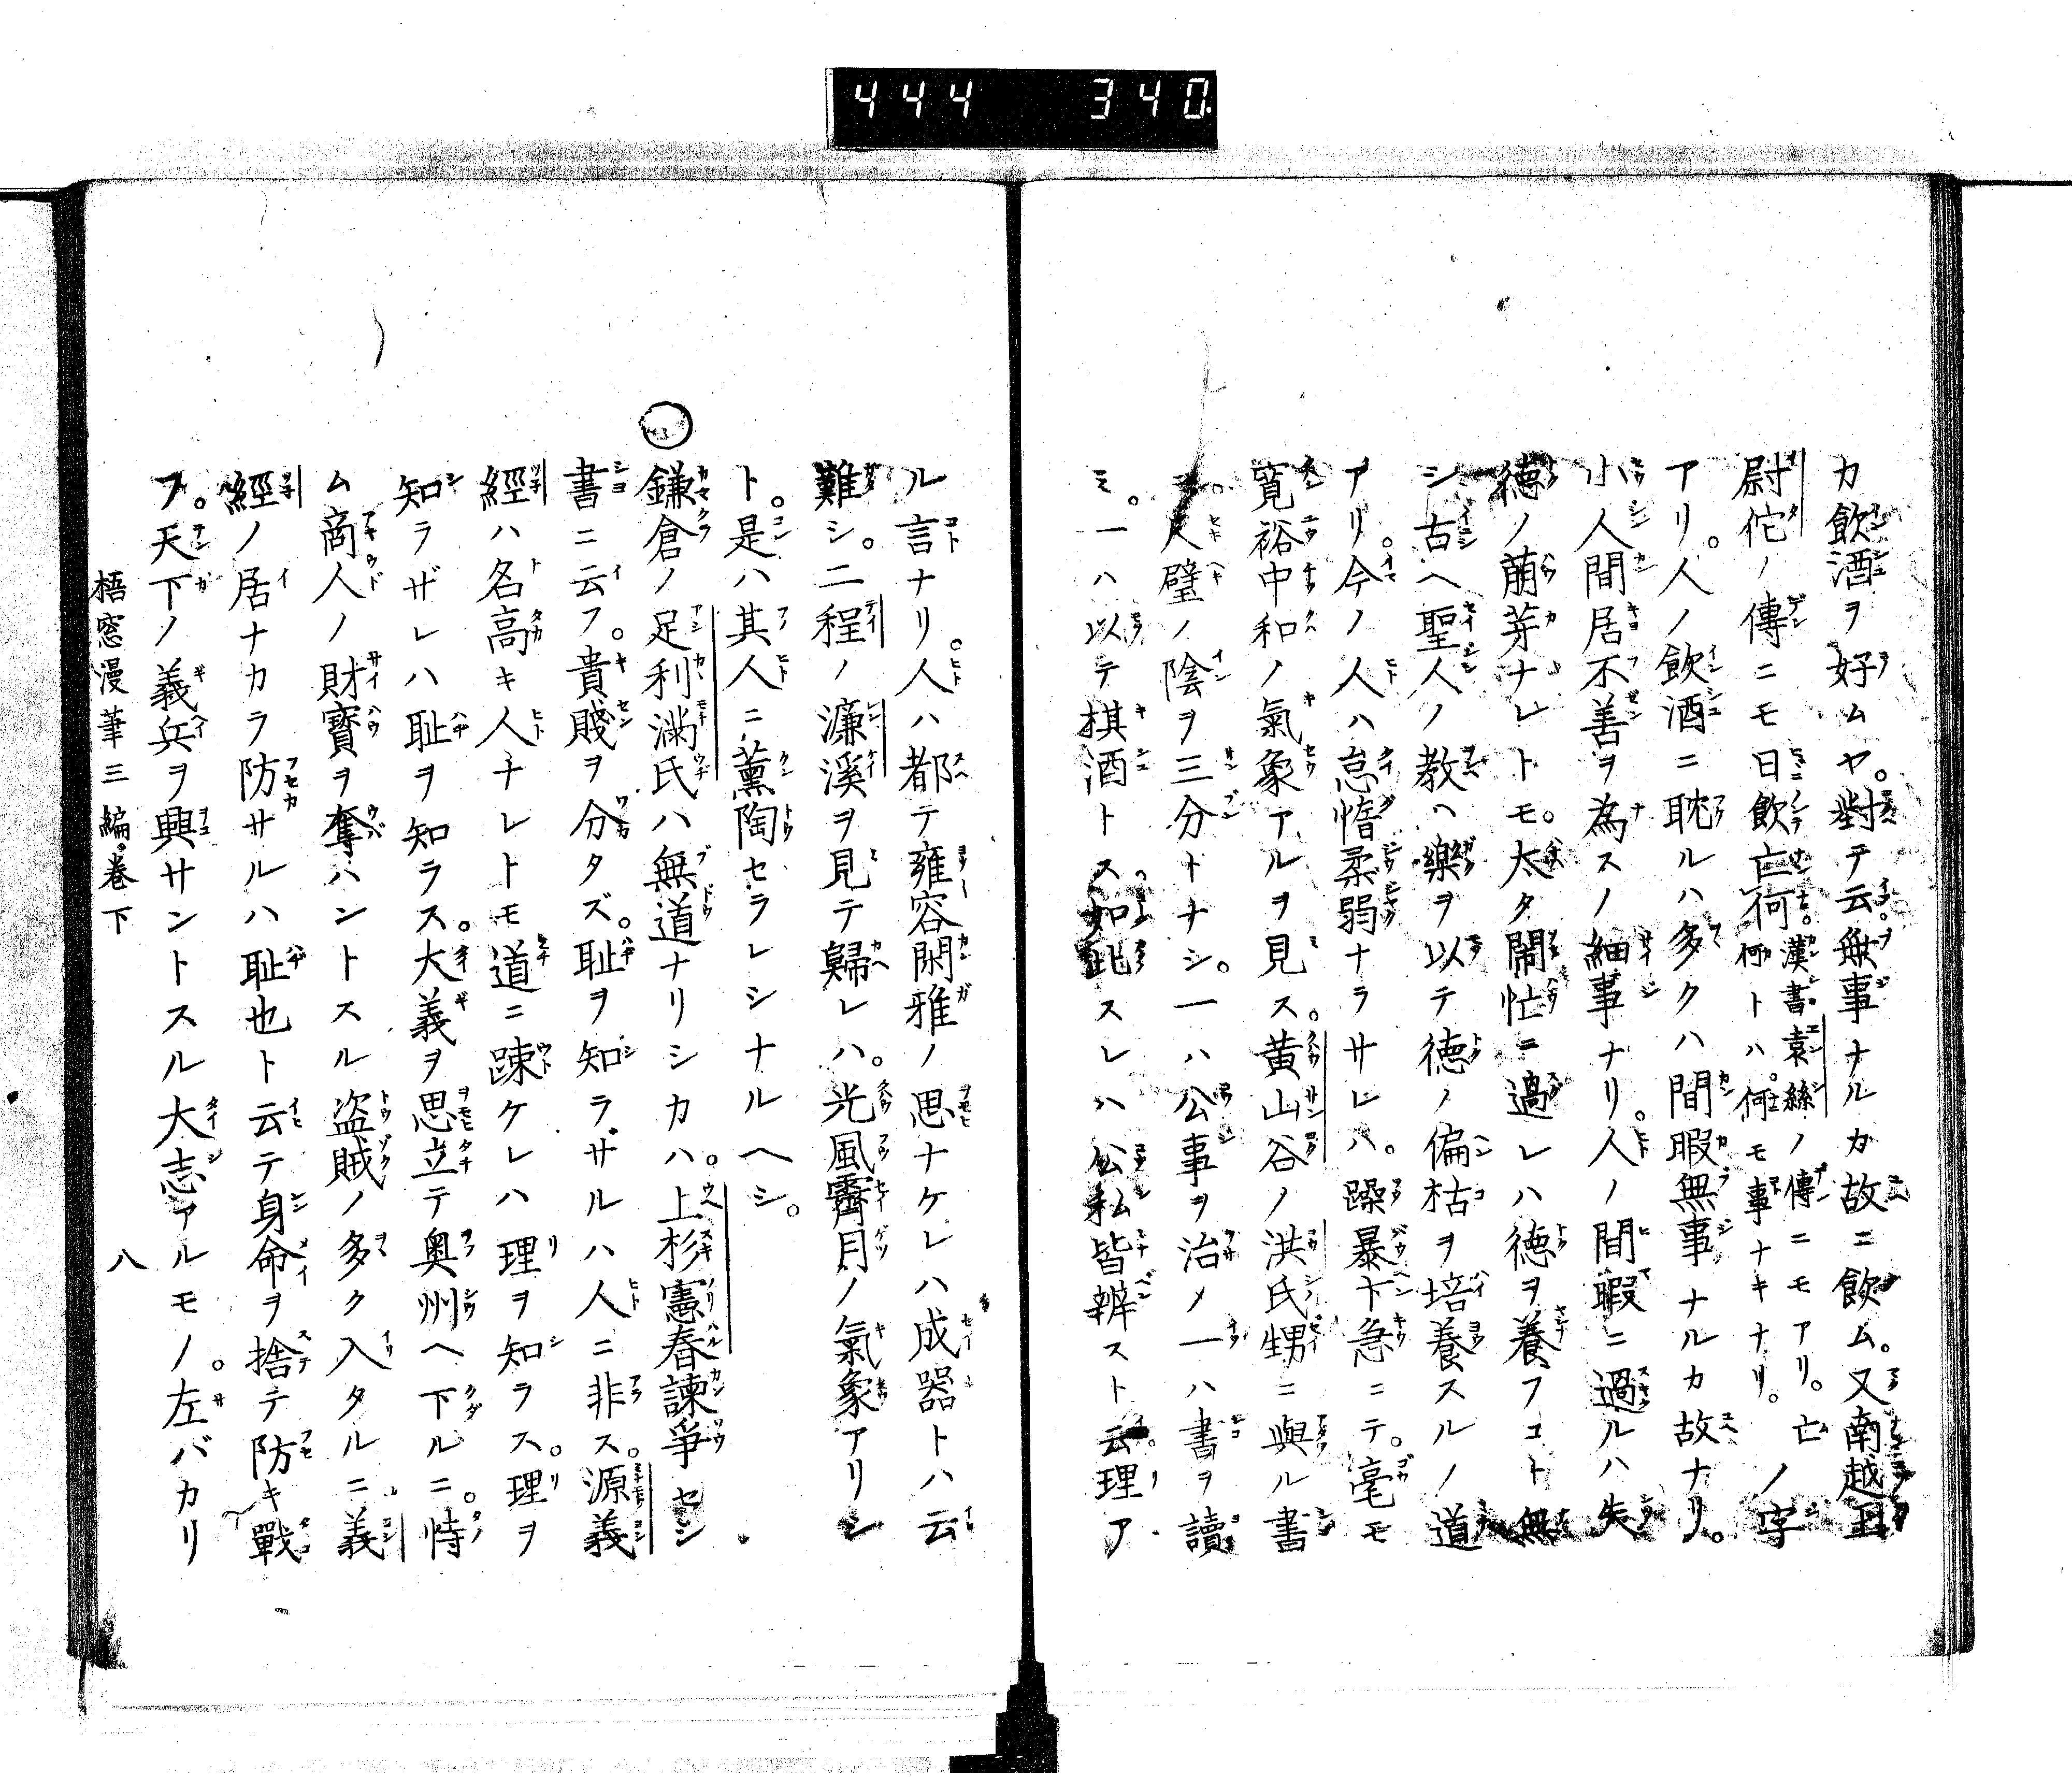 444 340.
カ飲酒ヲ好ムヤ。對テ云無事ナルカ故ニ飲ム。又南越王
尉佗ノ傳ニモ日飲亡何漢書袁絲ノ傳ニモアリ。亡ノ字
何トハ。何モ事ナキナリ。
アリ。人ノ飲酒ニ耽ルハ多クハ間暇無事ナルカ故ナリ。
小人間居不善ヲ為スノ細事ナリ。人ノ間暇ニ過ルハ失
德ノ萠芽ナレトモ。太タ鬧忙ニ過レハ德ヲ養フコト無
シ古ヘ聖人ノ教ヘ樂ヲ以テ德ノ偏枯ヲ培養スルノ道
アリ。今ノ人ハ怠惰柔弱ナラサレハ。躁暴卞急ニテ。毫モ
寛裕中和ノ氣象アルヲ見ス。黄山谷ノ洪氏甥ニ與ル書
ニ。尺璧ノ陰ヲ三分トナシ。一ハ公事ヲ治メ一ハ書ヲ讀
ミ。一ハ以テ棋酒トス如此スレハ公私皆辨スト云理ア
ル言ナリ。人ハ都テ雍容閑雅ノ思ナケレハ成器トハ云
難シ。二程ノ濂溪ヲ見テ歸レハ。光風霽月ノ氣象アリシ
ト。是ハ其人ニ薫陶セラレシナルヘシ。
鎌倉ノ足利滿氏ハ無道ナリシカハ。上杉憲春諫爭セシ
書ニ云フ。貴賤ヲ分タズ。耻ヲ知ラサルハ人ニ非ス。源義
經ハ名高キ人ナレトモ道ニ踈ケレハ理ヲ知ラス。理ヲ
知ラザレハ耻ヲ知ラス。大義ヲ思立テ奥州ヘ下ルニ。恃
ム商人ノ財寶ヲ奪ハントスル盜賊ノ多ク入タルニ義
經ノ居ナカラ防サルハ耻也ト云テ身命ヲ捨テ防キ戰
フ。天下ノ義兵ヲ興サントスル大志アルモノ。左バカリ
梧窓漫筆三編巻下 八